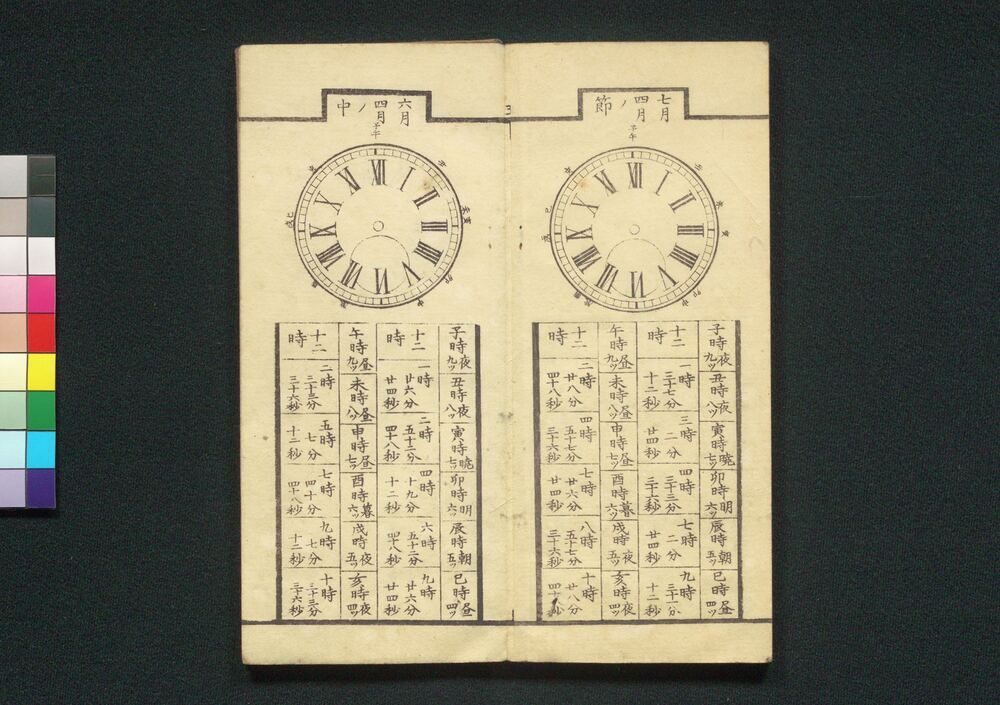 七月
四月
ノ節
子午
XII I II III IIII V VI VII VIII IX X XI
子時夜九ツ
丑時夜八ツ
寅時暁七ツ
卯時明六ツ
辰時朝五ツ
巳時昼四ツ
十二時
一時三十一分十二秒
三時二分廿四秒
四時三十三分三十六秒
七時二分廿四秒
九時三十一分十二秒
午時昼九ツ
未時昼八ツ
申時昼七ツ
酉時暮六ツ
戌時夜五ツ
亥時夜四ツ
十二時
二時廿八分四十八秒
四時五十七分三十六秒
七時廿六分廿四秒
八時五十七分三十六秒
十時廿八分四十八秒
六月
四月
ノ中
子午
XII I II III IIII V VI VII VIII IX X XI
子時夜九ツ
丑時夜八ツ
寅時暁七ツ
卯時明六ツ
辰時朝五ツ
巳時昼四ツ
十二時
一時廿六分廿四秒
二時五十二分四十八秒
四時十九分十二秒
六時五十二分四十八秒
九時廿六分廿四秒
午時昼九ツ
未時昼八ツ
申時昼七ツ
酉時暮六ツ
戌時夜五ツ
亥時夜四ツ
十二時
二時三十三分三十六秒
五時七分十二秒
七時四十分四十八秒
九時七分十二秒
十時三十三分三十六秒